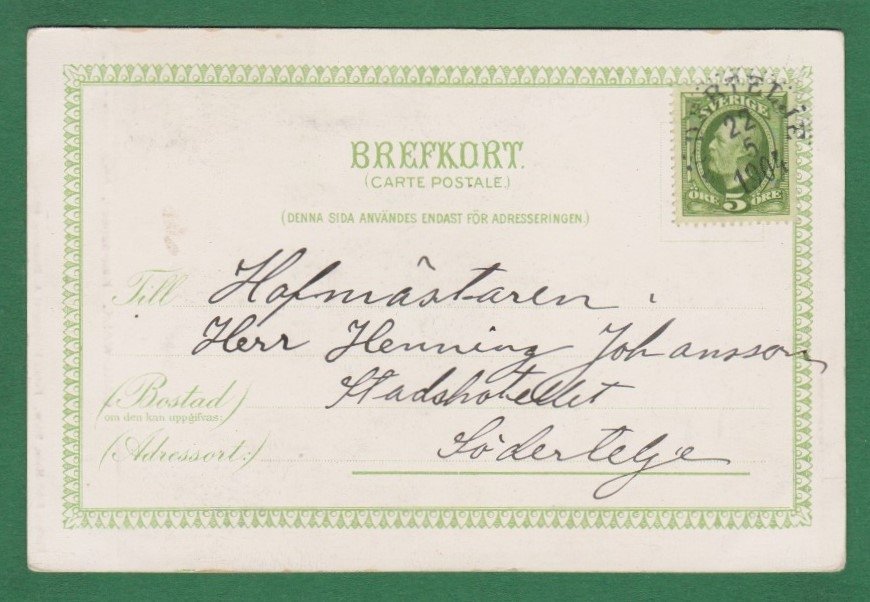 BREFKORT.
(CARTE POSTALE.)
(DENNA SIDA ANVÄNDES ENDAST FÖR ADRESSERINGEN.)
SVERIGE
ÖRE 5 ÖRE
22
5
1904
Till Hofmästaren
Herr Henning Johansson
(Bostad) Stadshotellet
om den kan uppgifvas:
(Adressort:) Södertelje